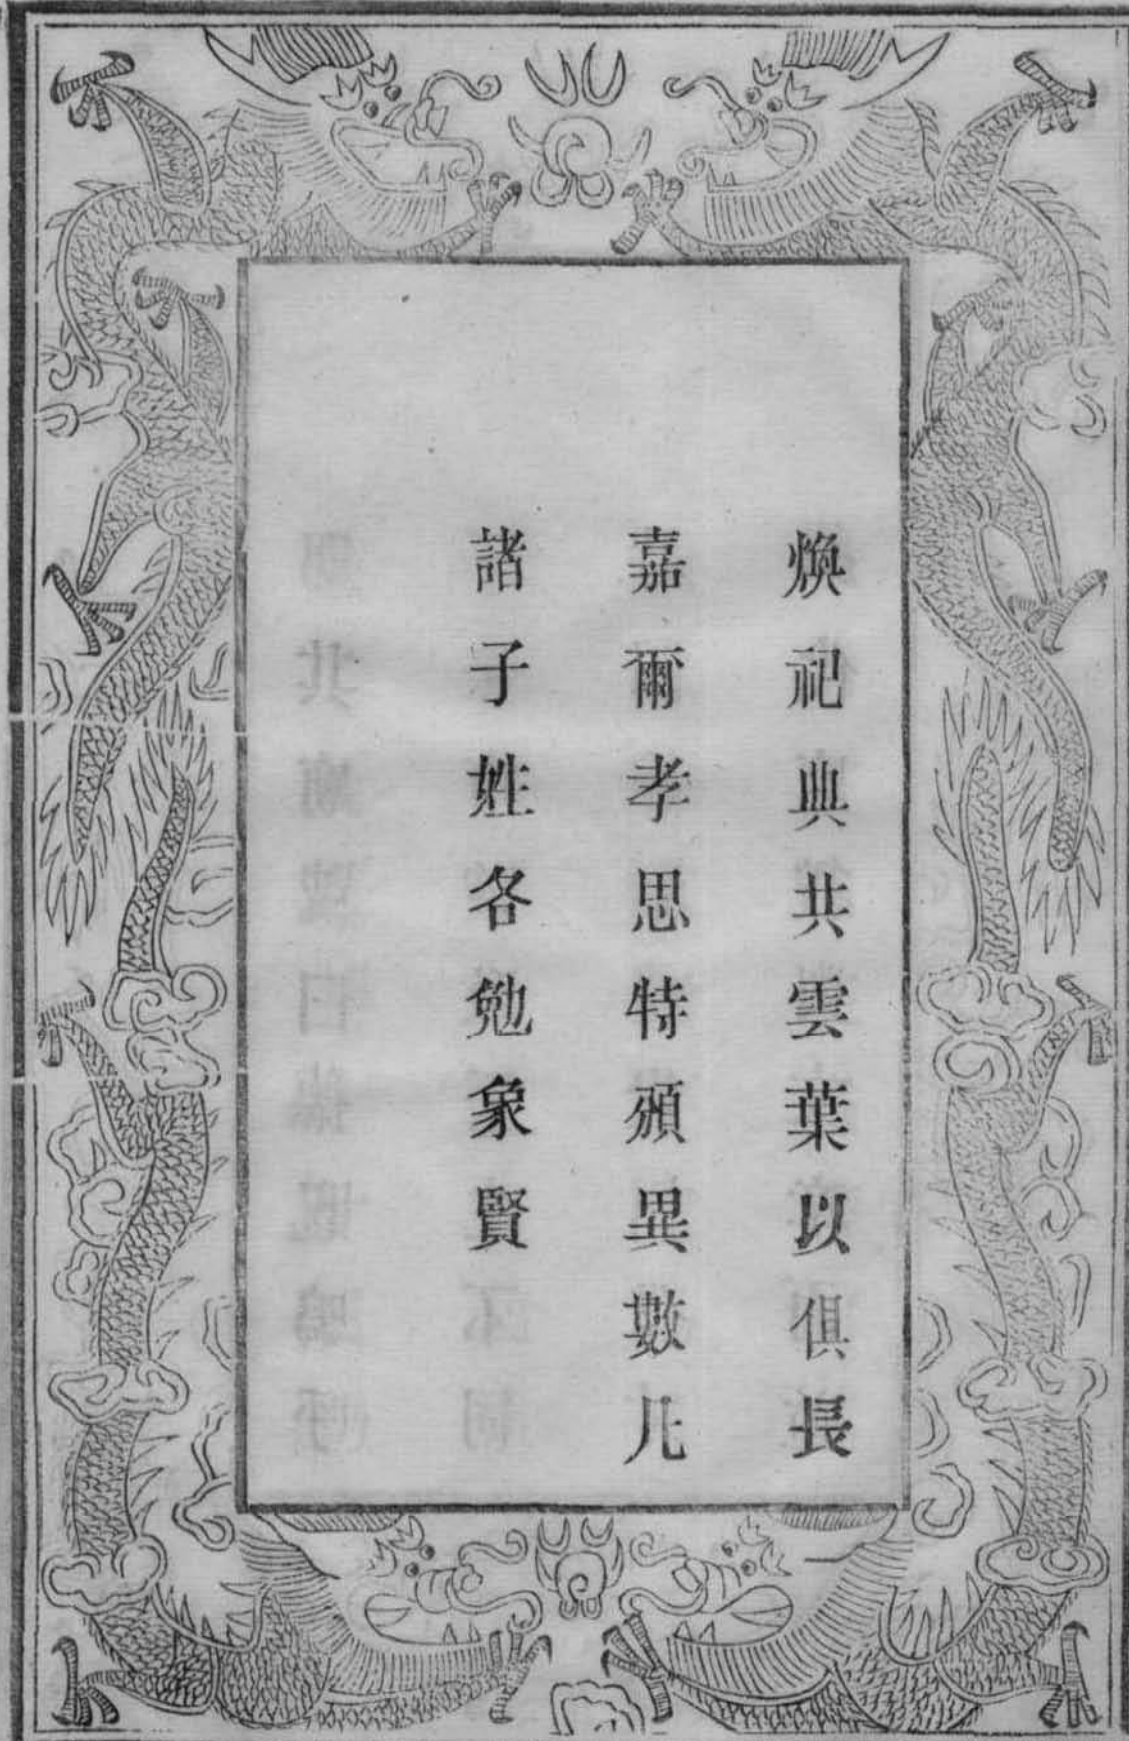 煥祀典共雲葉以俱長
嘉爾孝思特頒異數凢
諸子姓各勉象賢